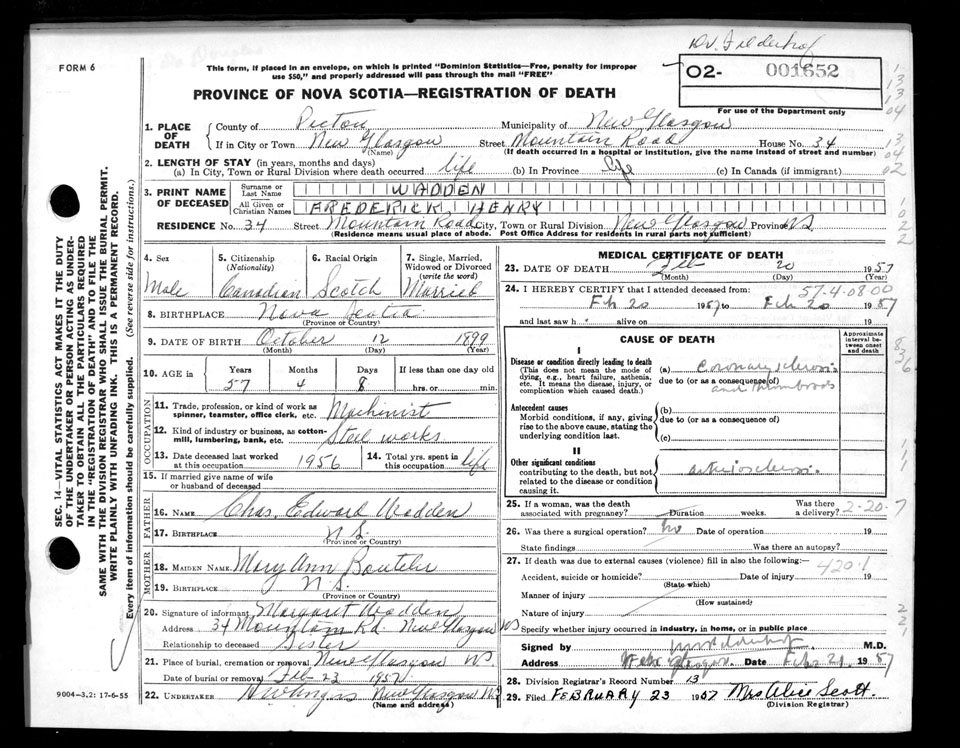 FORM 6
This form, if placed in an envelope, on which is printed "Dominion Statistics—Free, penalty for improper
use $50," and properly addressed will pass through the mail "FREE"
O2- 001652
For use of the Department only
PROVINCE OF NOVA SCOTIA—REGISTRATION OF DEATH
1. PLACE OF DEATH County of Pictou Municipality of New Glasgow
If in City or Town New Glasgow Street Mountain Road House No. 34
(Name) (If death occurred in a hospital or institution, give the name instead of street and number)
2. LENGTH OF STAY (in years, months and days)
(a) In City, Town or Rural Division where death occurred life (b) In Province life (c) In Canada (if immigrant)
3. PRINT NAME OF DECEASED Surname or Last Name WADDEN
All Given or Christian Names FREDERICK HENRY
RESIDENCE No. 34 Street Mountain Road City, Town or Rural Division New Glasgow Province NS
(Residence means usual place of abode. Post Office Address for residents in rural parts not sufficient)
4. Sex Male
5. Citizenship (Nationality) Canadian
6. Racial Origin Scotch
7. Single, Married, Widowed or Divorced (write the word) Married
8. BIRTHPLACE Nova Scotia
(Province or Country)
9. DATE OF BIRTH October 12 1899
(Month) (Day) (Year)
10. AGE in Years Months Days If less than one day
57 4 8 hrs. or min.
OCCUPATION
11. Trade, profession, or kind of work as spinner, teamster, office clerk, etc. Machinist
12. Kind of industry or business, as cotton-mill, lumbering, bank, etc. Steel works
13. Date deceased last worked at this occupation 1956 14. Total yrs. spent in this occupation life
15. If married give name of wife or husband of deceased
FATHER
16. NAME Chas. Edward Wadden
17. BIRTHPLACE N.S.
(Province or Country)
MOTHER
18. MAIDEN NAME Mary Ann
19. BIRTHPLACE N.S.
(Province or Country)
20. Signature of informant Margaret Wadden
Address 34 Mountain Rd. New Glasgow NS
Relationship to deceased Sister
21. Place of burial, cremation or removal New Glasgow NS
Date of burial or removal Feb 23 1957
22. UNDERTAKER New Glasgow NS
(Name and address)
MEDICAL CERTIFICATE OF DEATH
23. DATE OF DEATH Feb 20 1957
(Month) (Day) (Year)
24. I HEREBY CERTIFY that I attended deceased from: 57-4-08-00
Feb 20 1957 to Feb 20 1957
and last saw h alive on 19
CAUSE OF DEATH
Approximate interval between onset and death
I
Disease or condition directly leading to death
(This does not mean the mode of dying, e.g., heart failure, asthenia, etc. It means the disease, injury, or complication which caused death.)
(a) Coronary sclerosis
due to (or as a consequence of)
and thrombosis
Antecedent causes
Morbid conditions, if any, giving rise to the above cause, stating the underlying condition last.
(b)
due to (or as a consequence of)
(c)
II
Other significant conditions
contributing to the death, but not related to the disease or condition causing it.
arteriosclerosis
25. If a woman, was the death associated with pregnancy? Duration weeks. Was there a delivery? 2-20-7
26. Was there a surgical operation? no Date of operation 19
State findings Was there an autopsy?
27. If death was due to external causes (violence) fill in also the following:—
420.1
Accident, suicide or homicide? Date of injury 19
(State which)
Manner of injury
(How sustained)
Nature of injury
Specify whether injury occurred in industry, in home, or in public place
Signed by M.D.
Address New Glasgow Date Feb 21 1957
28. Division Registrar's Record Number 13
29. Filed FEBRUARY 23 1957 Mrs Alice Scott.
(Division Registrar)
SEC. 14—VITAL STATISTICS ACT MAKES IT THE DUTY
OF THE UNDERTAKER OR PERSON ACTING AS UNDER-
TAKER TO OBTAIN ALL THE PARTICULARS REQUIRED
IN THE "REGISTRATION OF DEATH" AND TO FILE THE
SAME WITH THE DIVISION REGISTRAR WHO SHALL ISSUE THE BURIAL PERMIT.
WRITE PLAINLY WITH UNFADING INK. THIS IS A PERMANENT RECORD.
Every item of information should be carefully supplied. (See reverse side for instructions.)
9004-3.2: 17-6-55